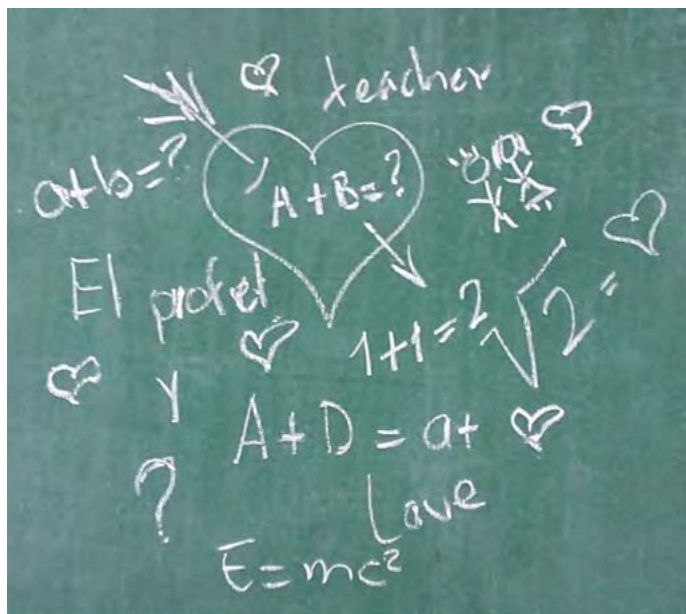 teacher
a+b=?
A+B=?
El profet
1+1=2
√2=
Y
A+D=a+
?
Love
E=mc²